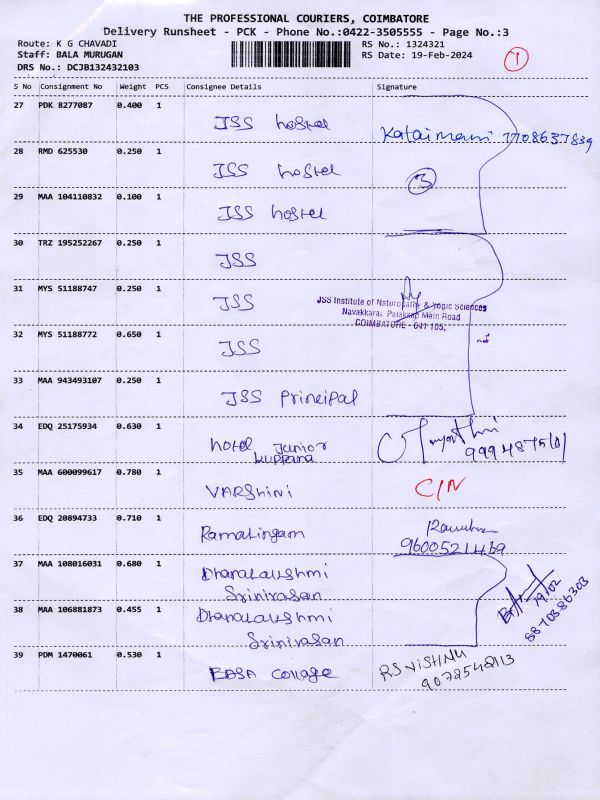 THE PROFESSIONAL COURIERS, COIMBATORE
Delivery Runsheet - PCK - Phone No.:0422-3505555 - Page No.:3
Route: K G CHAVADI
Staff: BALA MURUGAN
DRS No.: DCJB132432103
RS No.: 1324321
RS Date: 19-Feb-2024
1
S No Consignment No Weight PCS Consignee Details Signature
27 PDK 8277087 0.400 1
JSS hostel
Kalaimani 7708637839
28 RMD 625530 0.250 1
JSS hostel
3
29 MAA 104110832 0.100 1
JSS hostel
30 TRZ 195252267 0.250 1
JSS
31 MYS 51188747 0.250 1
JSS
JSS Institute of Naturopathy & Yogic Sciences
Navakkarai, Palakkad Main Road
COIMBATORE - 641 105.
32 MYS 51188772 0.650 1
JSS
33 MAA 943493107 0.250 1
JSS Principal
34 EDQ 25175934 0.630 1
hotel Junior
kuppana
35 MAA 600099617 0.780 1
VARShini
C/N
36 EDQ 20894733 0.710 1
Ramalingam
9600521469
37 MAA 108016031 0.680 1
Dhanalakshmi
Srinivasan
19/02
8870386303
38 MAA 106881873 0.455 1
Dhanalakshmi
Srinivasan
39 PDM 1470061 0.530 1
College
RS VISHNU
9072542113